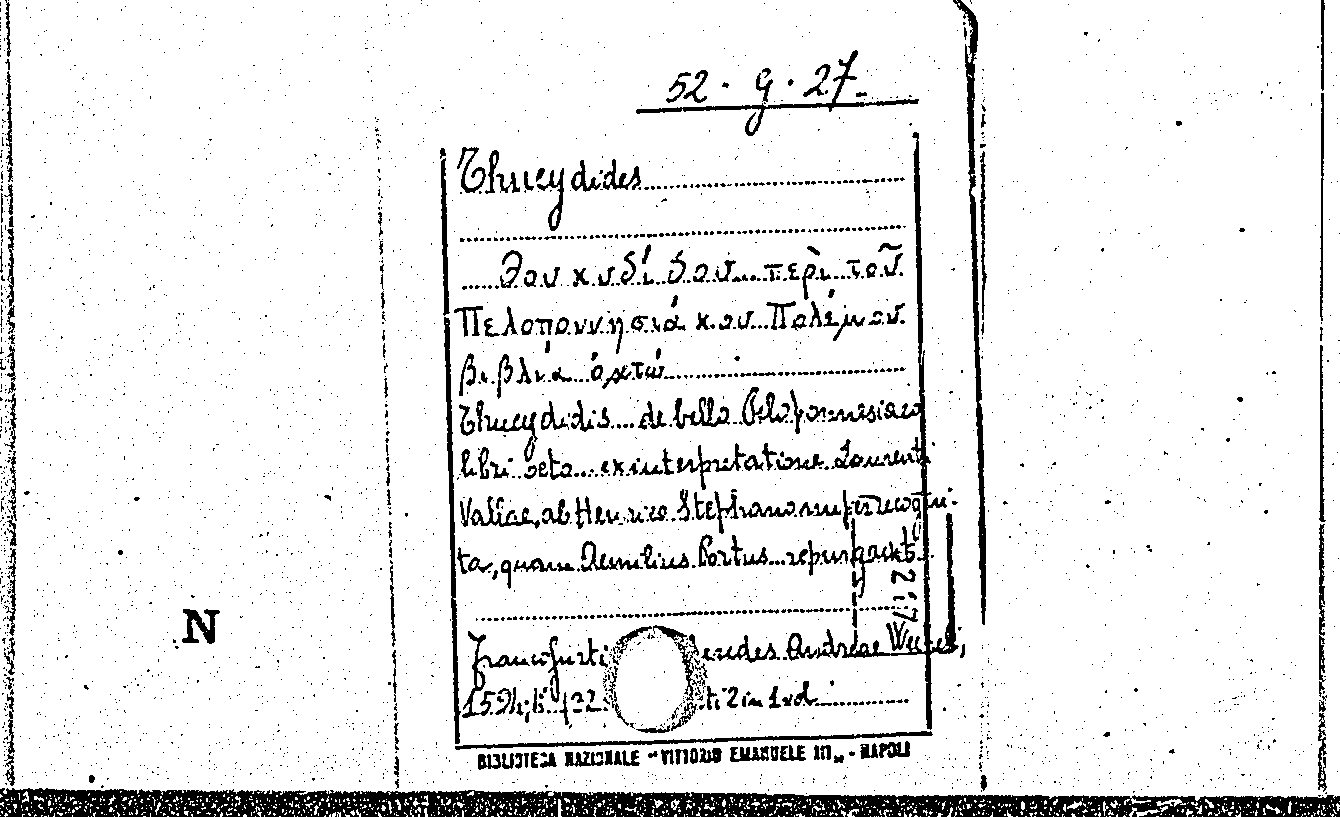 52 · g · 27
Thucydides
Θουκυδίδου περὶ τοῦ
Πελοποννησιάκου Πολέμου
βιβλιά ὀκτώ
Thucydidis de bello Peloponnesiaco
libri octo ex interpretatione Laurenti
Vallae, ab Henrico Stephano nuper recogni-
ta, quam Aemilius Portus repurgavit.
217
Francofurti Andreae
1594, ti 2 in 1 vol.
BIBLIOTECA NAZIONALE "VITTORIO EMANUELE III" - NAPOLI
N